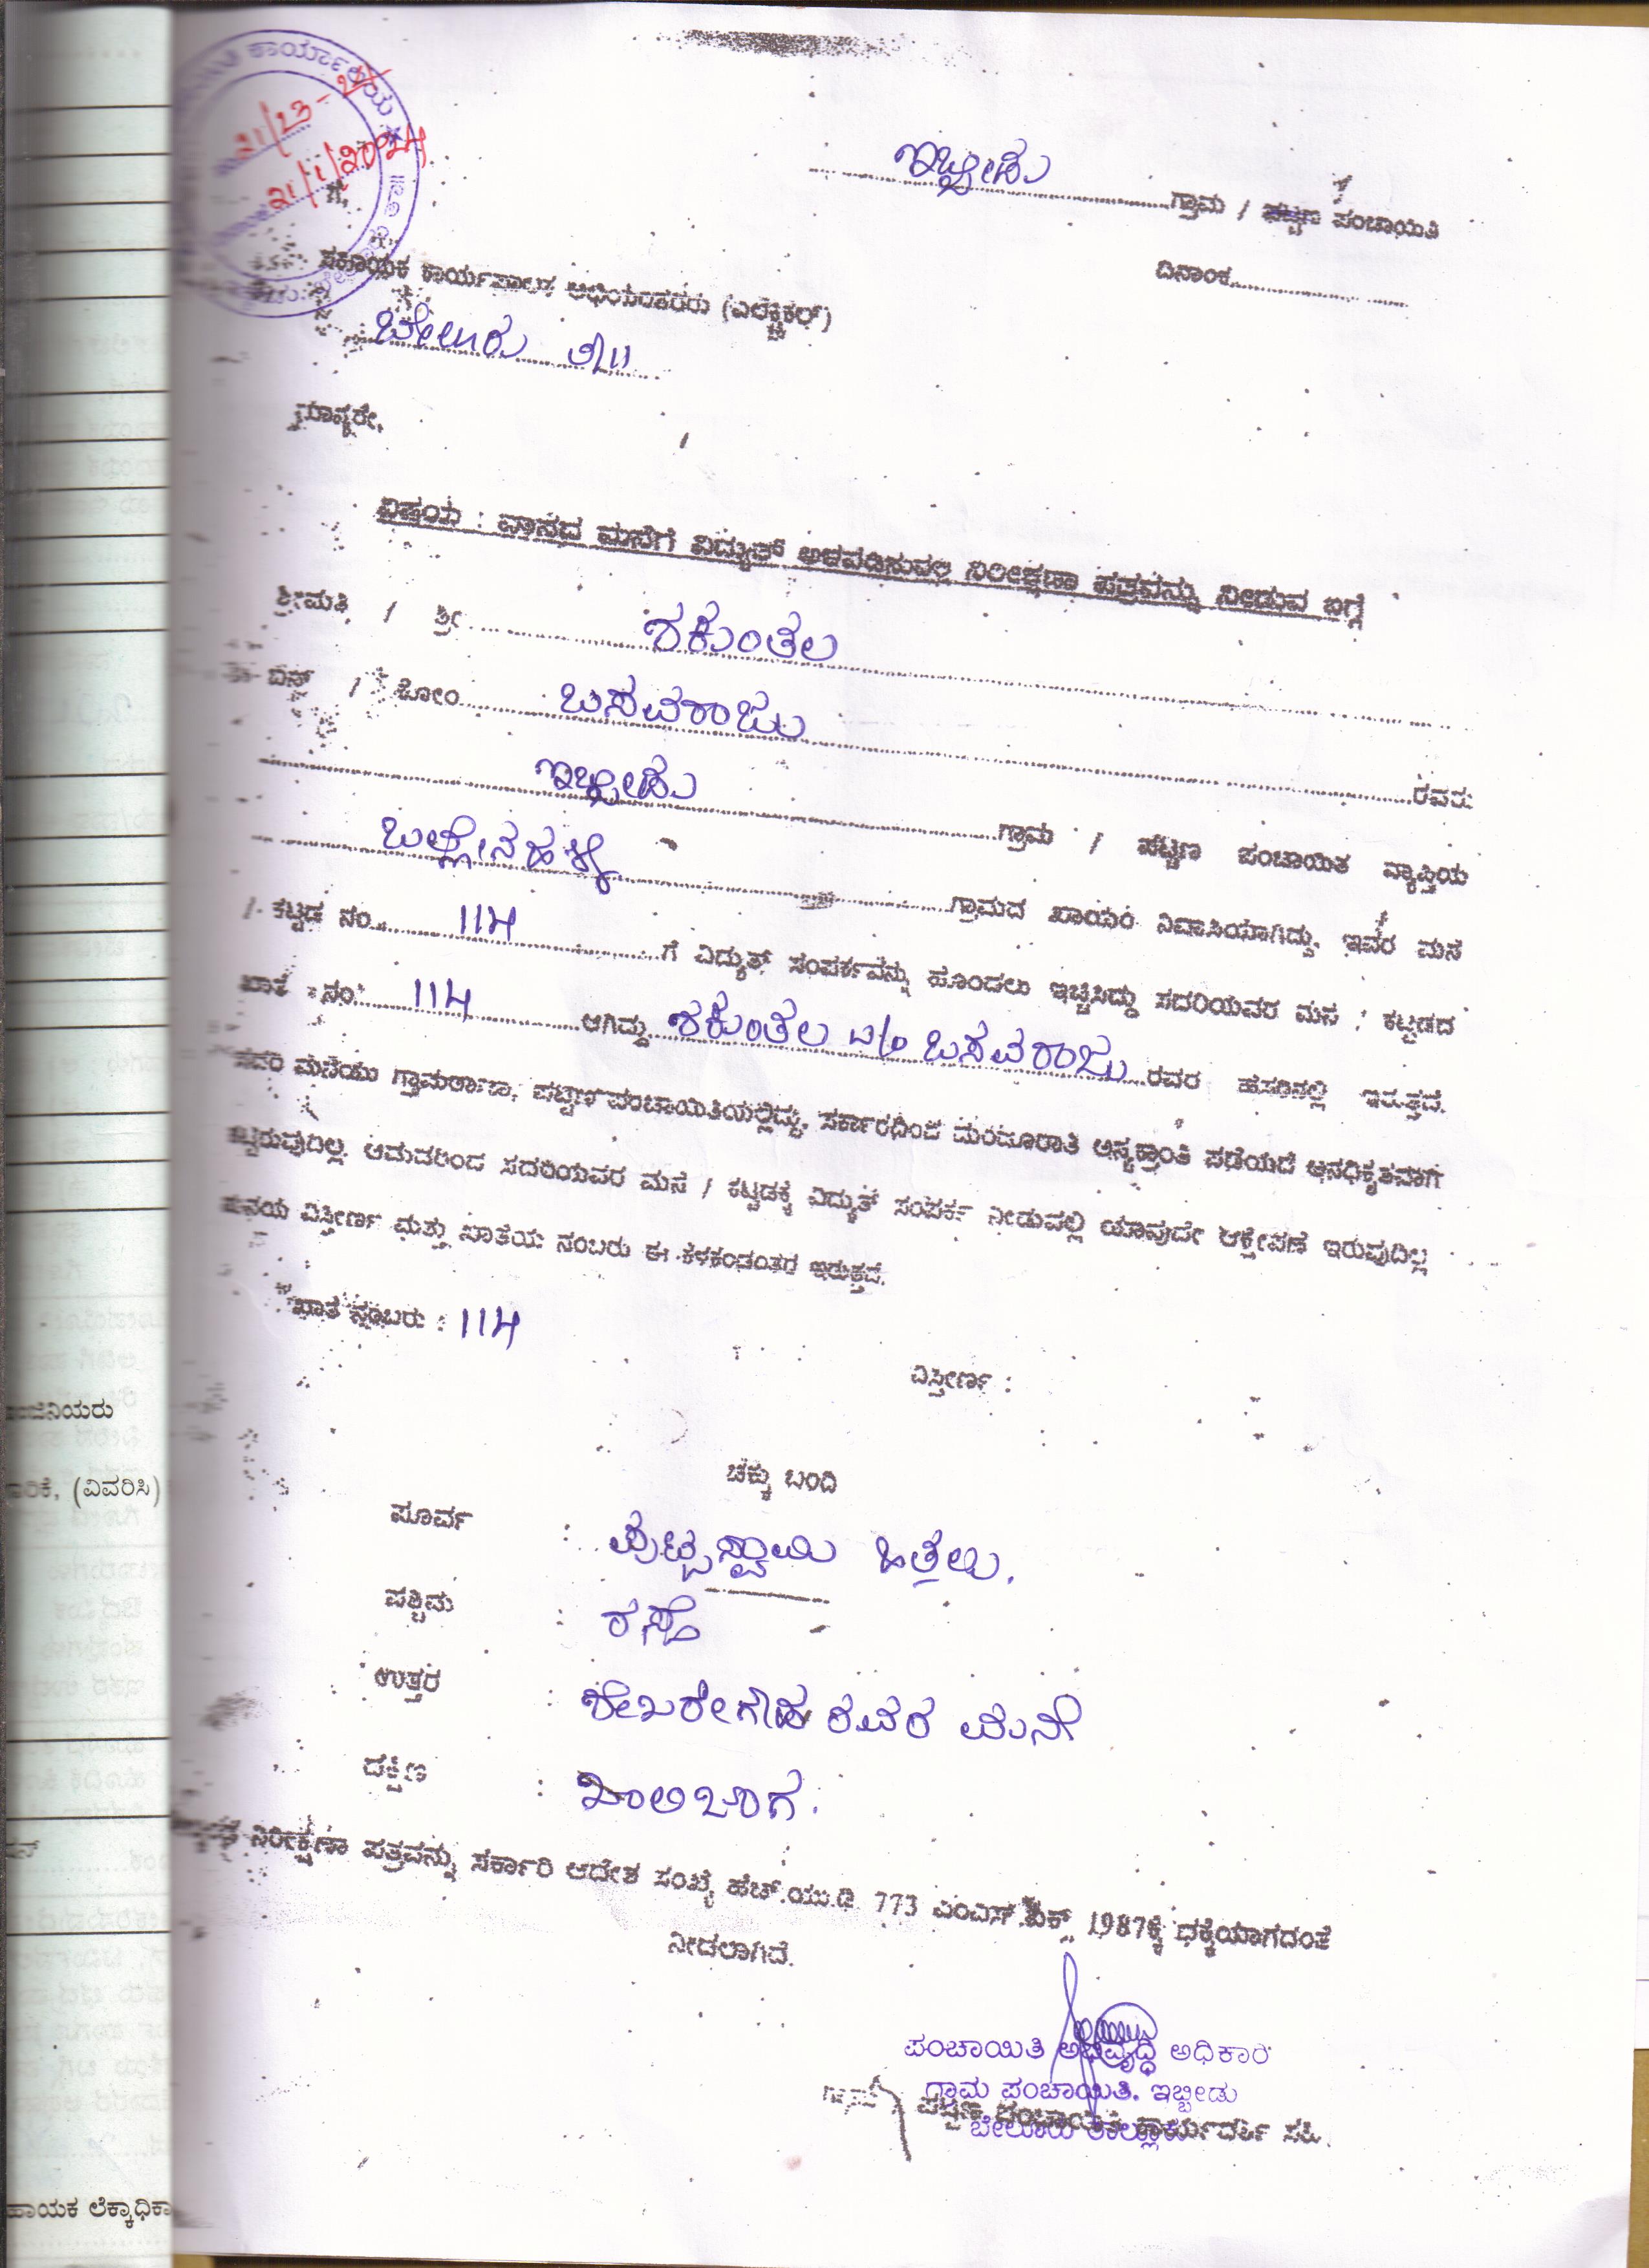 ಕಾರ್ಯಾಲಯ
21/23-24
21/1/2024
ಇಬ್ಬೀಡು ಗ್ರಾಮ / ಪಟ್ಟಣ ಪಂಚಾಯಿತಿ
ದಿನಾಂಕ
ಗೆ,
ಸಹಾಯಕ ಕಾರ್ಯಪಾಲಕ ಅಭಿಯಂತರರು (ಎಲೆಕ್ಟ್ರಿಕಲ್)
ಬೇಲೂರು
ಮಾನ್ಯರೇ,
ವಿಷಯ : ವಾಸದ ಮನೆಗೆ ವಿದ್ಯುತ್ ಅಳವಡಿಸುವಲ್ಲಿ ನಿರೀಕ್ಷಣಾ ಪತ್ರವನ್ನು ನೀಡುವ ಬಗ್ಗೆ
ಶ್ರೀಮತಿ / ಶ್ರೀ ಶಕುಂತಲ
ಬಿನ್ / ಕೋಂ ಬಸವರಾಜು ರವರು
ಇಬ್ಬೀಡು ಗ್ರಾಮ / ಪಟ್ಟಣ ಪಂಚಾಯಿತಿ ವ್ಯಾಪ್ತಿಯ
ಬಲ್ಲೇನಹಳ್ಳಿ ಗ್ರಾಮದ ಖಾಯಂ ನಿವಾಸಿಯಾಗಿದ್ದು, ಇವರ ಮನೆ
/ ಕಟ್ಟಡ ನಂ. 114 ಗೆ ವಿದ್ಯುತ್ ಸಂಪರ್ಕವನ್ನು ಹೊಂದಲು ಇಚ್ಚಿಸಿದ್ದು ಸದರಿಯವರ ಮನೆ / ಕಟ್ಟಡದ
ಖಾತೆ ನಂ 114 ಆಗಿದ್ದು ಶಕುಂತಲ w/o ಬಸವರಾಜು ರವರ ಹೆಸರಿನಲ್ಲಿ ಇರುತ್ತದೆ.
ಸದರಿ ಮನೆಯು ಗ್ರಾಮಠಾಣಾ, ಪಟ್ಟಣ ಪಂಚಾಯಿತಿಯಲ್ಲಿದ್ದು, ಸರ್ಕಾರದಿಂದ ಮಂಜೂರಾತಿ ಅನ್ಯಕ್ರಾಂತಿ ಪಡೆಯದೆ ಅನಧಿಕೃತವಾಗಿ
ಕಟ್ಟಿರುವುದಿಲ್ಲ. ಆದುದರಿಂದ ಸದರಿಯವರ ಮನೆ / ಕಟ್ಟಡಕ್ಕೆ ವಿದ್ಯುತ್ ಸಂಪರ್ಕ ನೀಡುವಲ್ಲಿ ಯಾವುದೇ ಆಕ್ಷೇಪಣೆ ಇರುವುದಿಲ್ಲ
ಮನೆಯ ವಿಸ್ತೀರ್ಣ ಮತ್ತು ಖಾತೆಯ ನಂಬರು ಈ ಕೆಳಕಂಡಂತೆ ಇರುತ್ತದೆ.
ಖಾತೆ ನಂಬರು : 114
ವಿಸ್ತೀರ್ಣ :
ಚೆಕ್ಕು ಬಂದಿ
ಪೂರ್ವ : ಪುಟ್ಟಸ್ವಾಮಿ ಹಿತ್ತಲು.
ಪಶ್ಚಿಮ : ರಸ್ತೆ
ಉತ್ತರ : ಶೇಖರೇಗೌಡ ರವರ ಮನೆ
ದಕ್ಷಿಣ : ಖಾಲಿ ಜಾಗ.
ನಿರೀಕ್ಷಣಾ ಪತ್ರವನ್ನು ಸರ್ಕಾರಿ ಆದೇಶ ಸಂಖ್ಯೆ ಹೆಚ್.ಯು.ಡಿ 773 ಎಂಎನ್.ಎಕ್ಸ್ 1987ಕ್ಕೆ ಧಕ್ಕೆಯಾಗದಂತೆ
ನೀಡಲಾಗಿದೆ.
ಪಂಚಾಯಿತಿ ಅಭಿವೃದ್ಧಿ ಅಧಿಕಾರಿ
ಗ್ರಾಮ ಪಂಚಾಯಿತಿ. ಇಬ್ಬೀಡು
ಬೇಲೂರು ತಾಲ್ಲೂಕು
ಗ್ರಾಮ / ಪಟ್ಟಣ ಪಂಚಾಯಿತಿ ಕಾರ್ಯದರ್ಶಿ ಸಹಿ.
ಇಂಜಿನಿಯರು
(ವಿವರಿಸಿ)
ಸಹಾಯಕ ಲೆಕ್ಕಾಧಿಕಾ